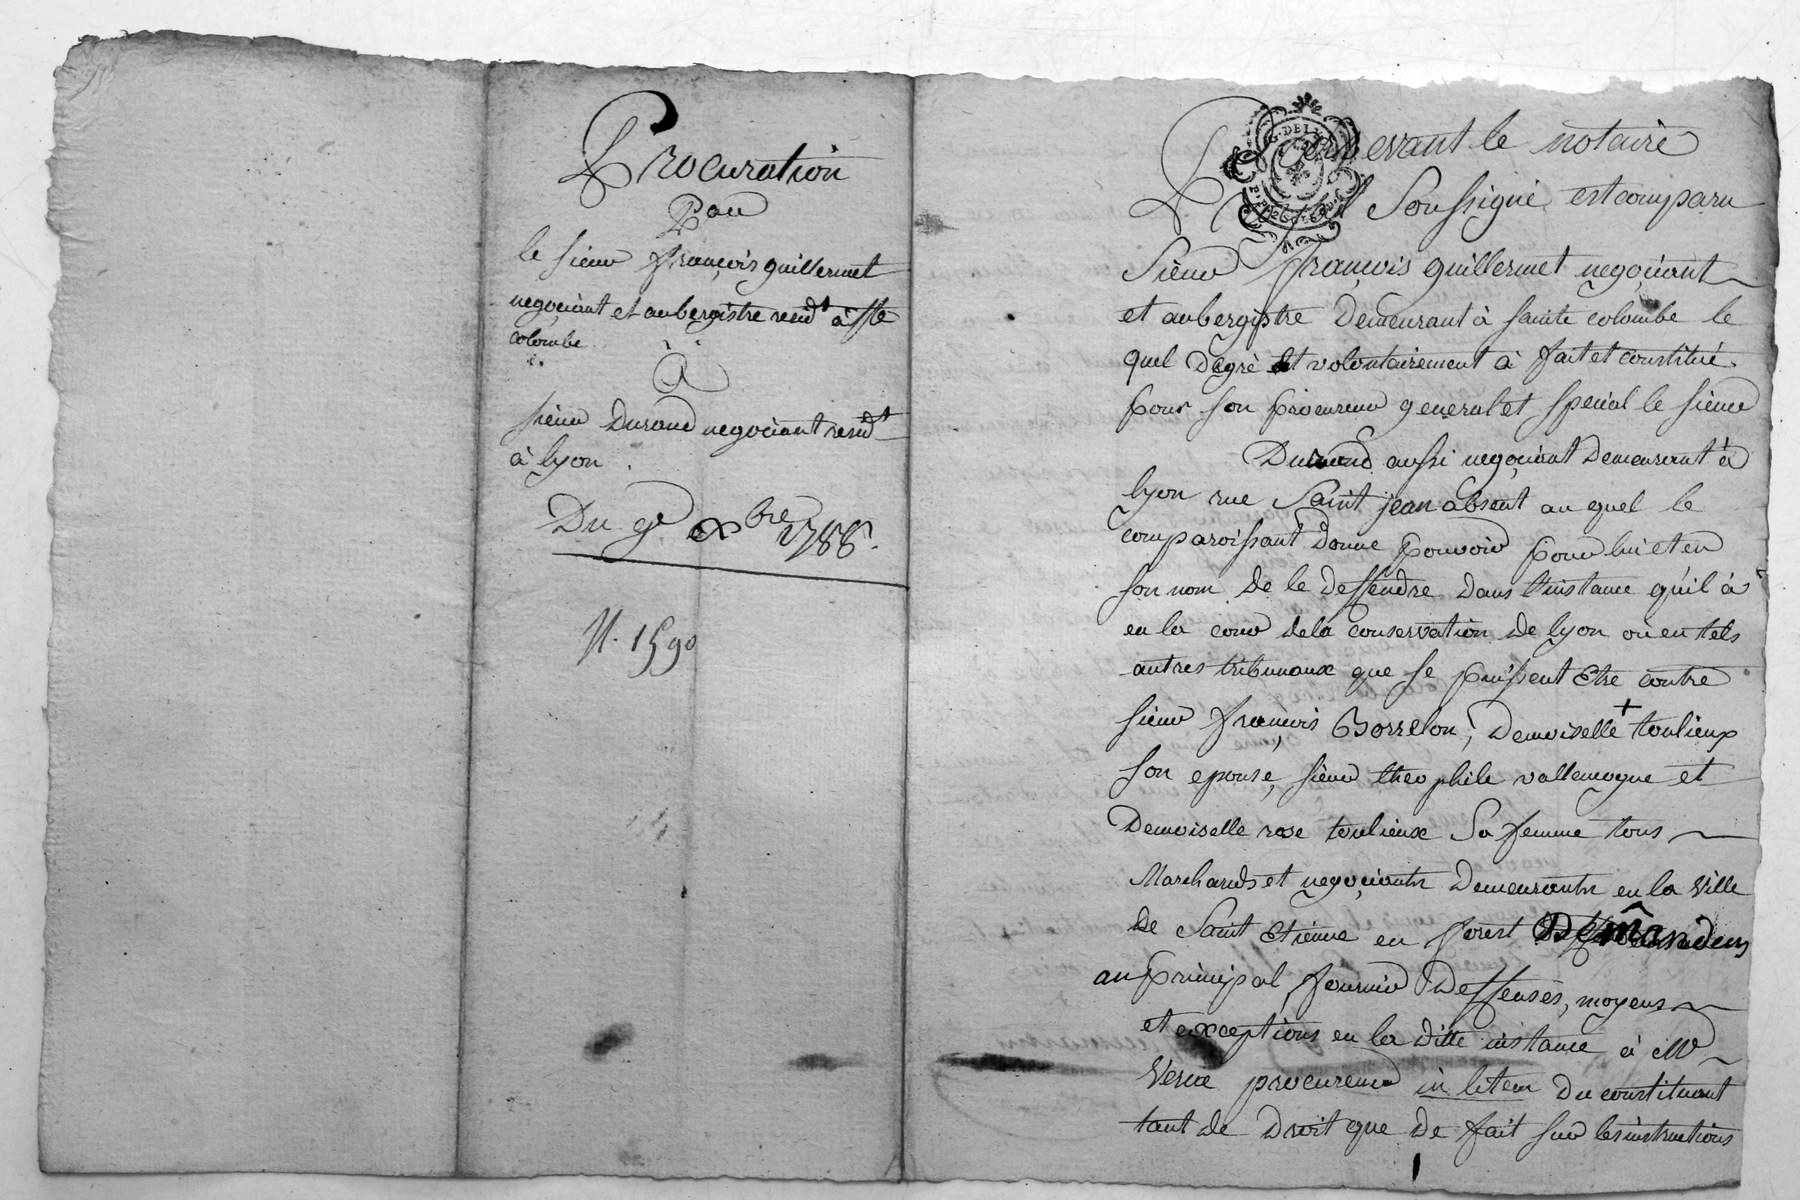 Procuration
Par
le sieur françois guillermet
negociant et aubergistre resid.t à Ste
colombe
A
sieur Durand negociant resid.t
à lyon.
Du 9e xbre 1788.
N. 1590
Pardevant le notaire
Soussigné est comparu
Sieur françois guillermet negociant
et aubergistre Demeurant à sainte colombe le
quel Dégré et volontairement à fait et constitué
pour son procureur general et special le sieur
Durand aussi negociant Demeurant à
lyon rue Saint jean absent au quel le
comparoissant Donne pouvoir pour lui et en
son nom De le deffendre Dans l'instance qu'il à
en la cour dela conservation De lyon ou en tels
autres tribunaux que se puissent Etre contre
sieur françois Borrelon, Demoiselle + toulieux
son epouse, sieur theophile vallemogne et
Demoiselle rose toulieux Sa femme tous
Marchands et negociants Demeurants en la ville
De Saint Etienne en forest Demandeurs
au principal, fournir Deffenses, moyens
et exceptions en la ditte instance à Mr
procureur in litem Du constituant
tant de Droit que De fait sur les instructions